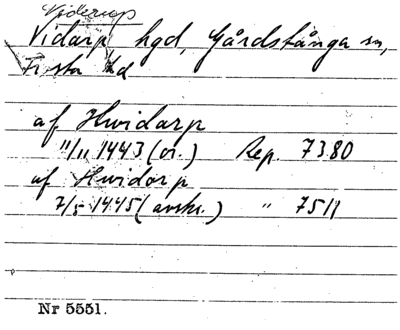 Viderup
Vidarp, hgd, Gårdstånga sn,
Frosta hd
af Hvidarp
11/11 1443 (or.) Rep. 7380
af Hvidorp
7/5 1445 (avskr.) " 7511
Nr 5551.